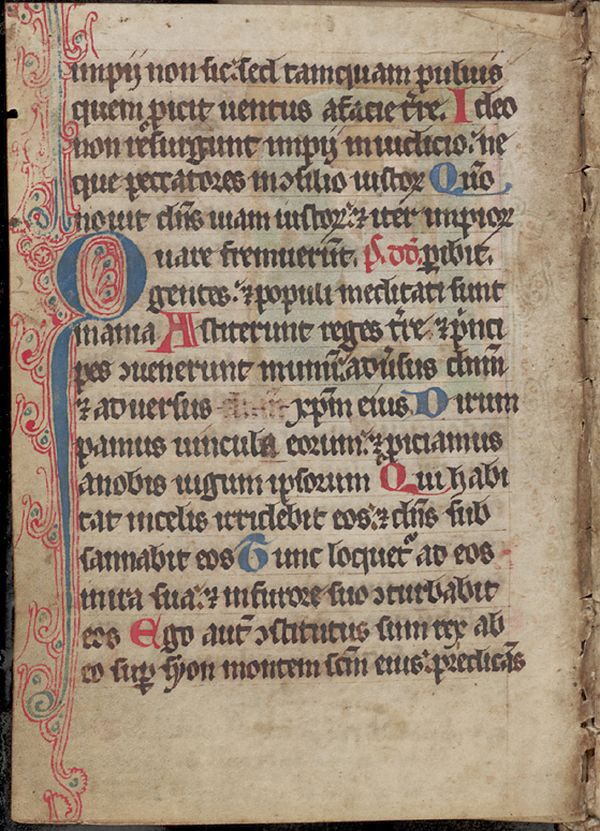 impij non sic: sed tamquam puluis
quem ꝓicit uentus afacie t̄re. Ideo
non resurgunt impij iniudicio: ne
que peccatores inꝯsilio iustoꝝ Qm̄o
nouit dn̄s uiam iustoꝝ: ⁊ iter impioꝝ
Quare fremuerūt. p̱ibit.
gentes: ⁊ populi meditati sunt
inania Astiterunt reges t̄re ⁊ pⁱnci
pes ꝯuenerunt inunū: adūsus dn̄m
⁊ aduersus xp̄m eius Dirum
pamus uincula eorum: ⁊ ꝓiciamus
anobis iugum ipsorum Qui habi
tat incelis irridebit eos: ⁊ dn̄s sub
sannabit eos Tunc loquet᷑ ad eos
inira sua: ⁊ infurore suo ꝯturbabit
eos Ego aut̄ ꝯstitutus sum rex ab
eo sup̄ syon montem scm̄ eius: p̄dicās